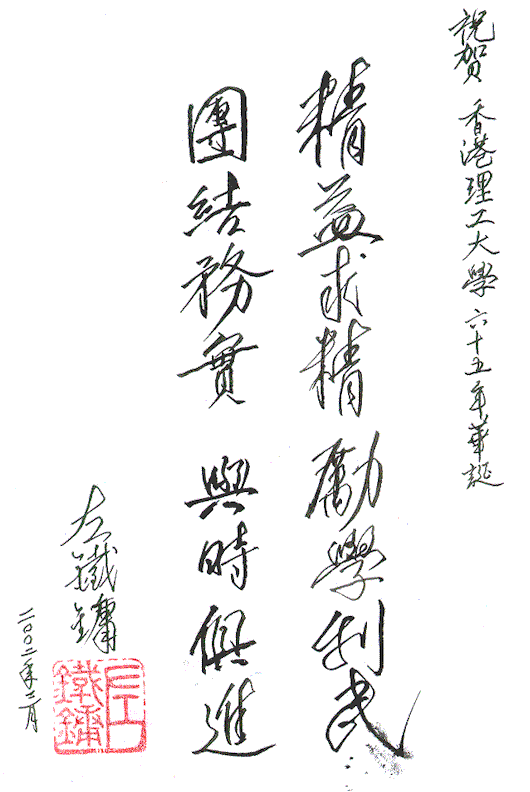 祝賀 香港理工大學 六十五年華誕
精益求精 勵學利民
團結務實 與時俱進
左鐵鏞
二〇〇二年三月
左鐵鏞